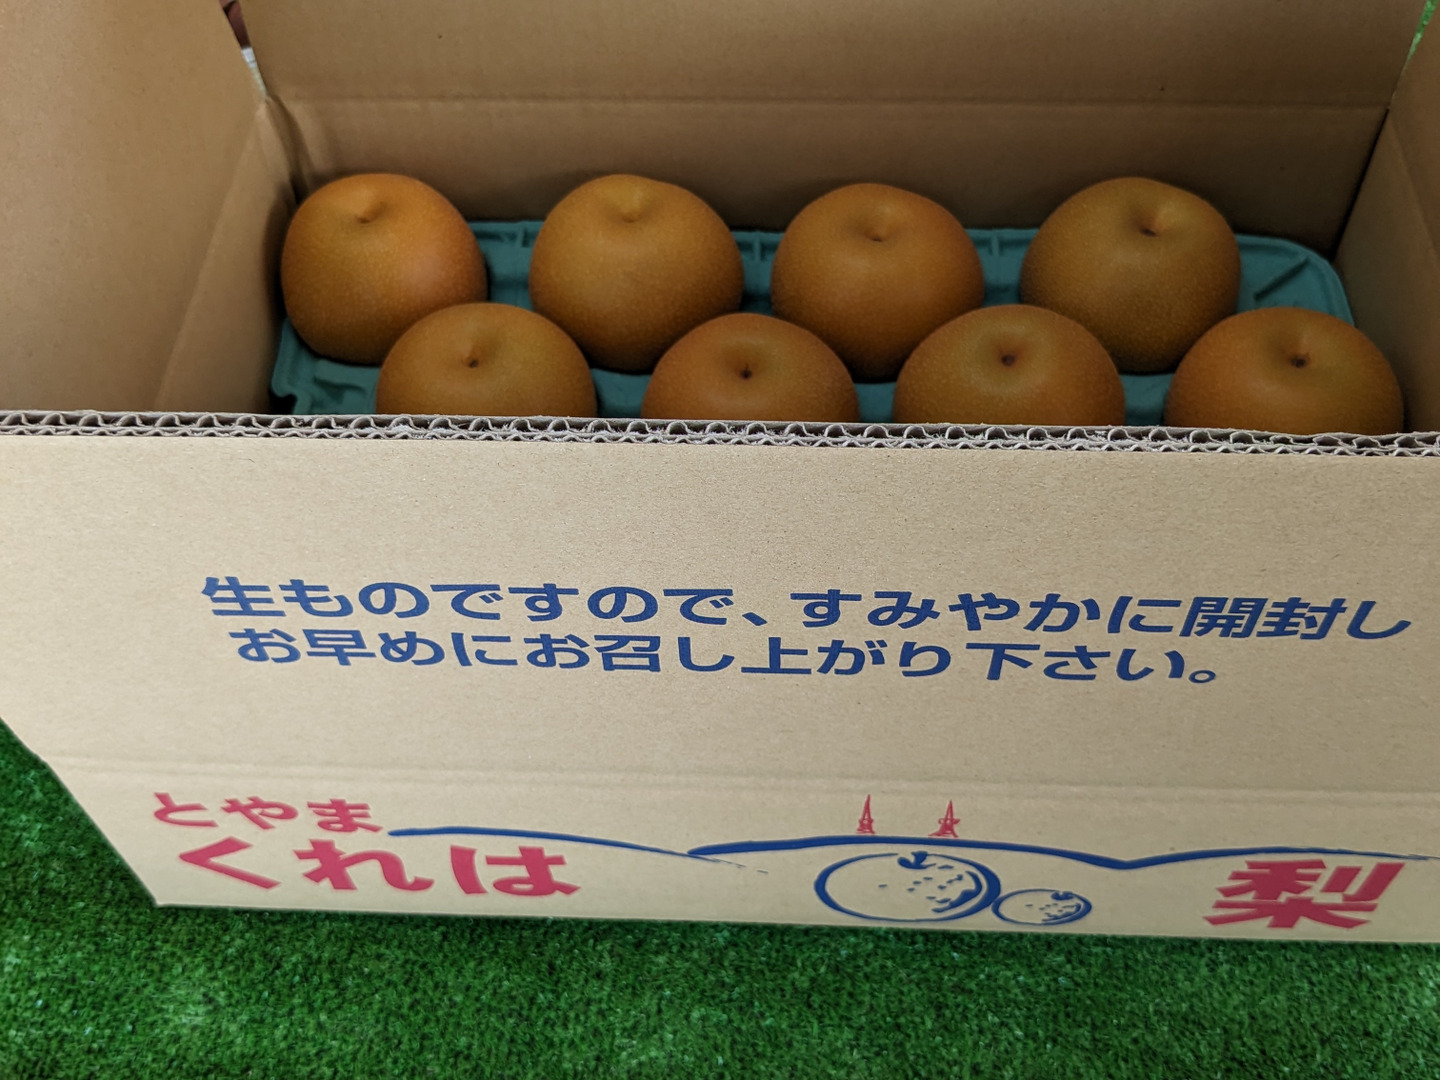 生ものですので、すみやかに開封し
お早めにお召し上がり下さい。
とやま
くれは 梨